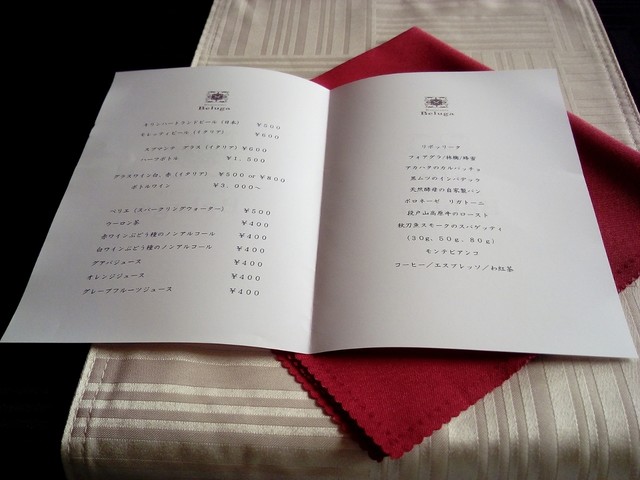 Beluga
キリンハートランドビール (日本) ￥500
モレッティビール (イタリア) ￥600
スプマンテ グラス (イタリア) ￥600
ハーフボトル ￥1,500
グラスワイン白、赤 (イタリア) ￥500 or ￥800
ボトルワイン ￥3,000～
ペリエ (スパークリングウォーター) ￥500
ウーロン茶 ￥400
赤ワインぶどう種のノンアルコール ￥400
白ワインぶどう種のノンアルコール ￥400
グアバジュース ￥400
オレンジジュース ￥400
グレープフルーツジュース ￥400
Beluga
リボッリータ
フォアグラ/林檎/蜂蜜
のカルパッチョ
黒ムツのインパデッラ
天然酵母の自家製パン
ボロネーゼ リガトーニ
段戸山高原牛のロースト
秋刀魚スモークのスパゲッティ
(30g、50g、80g)
モンテビアンコ
コーヒー/エスプレッソ/和紅茶